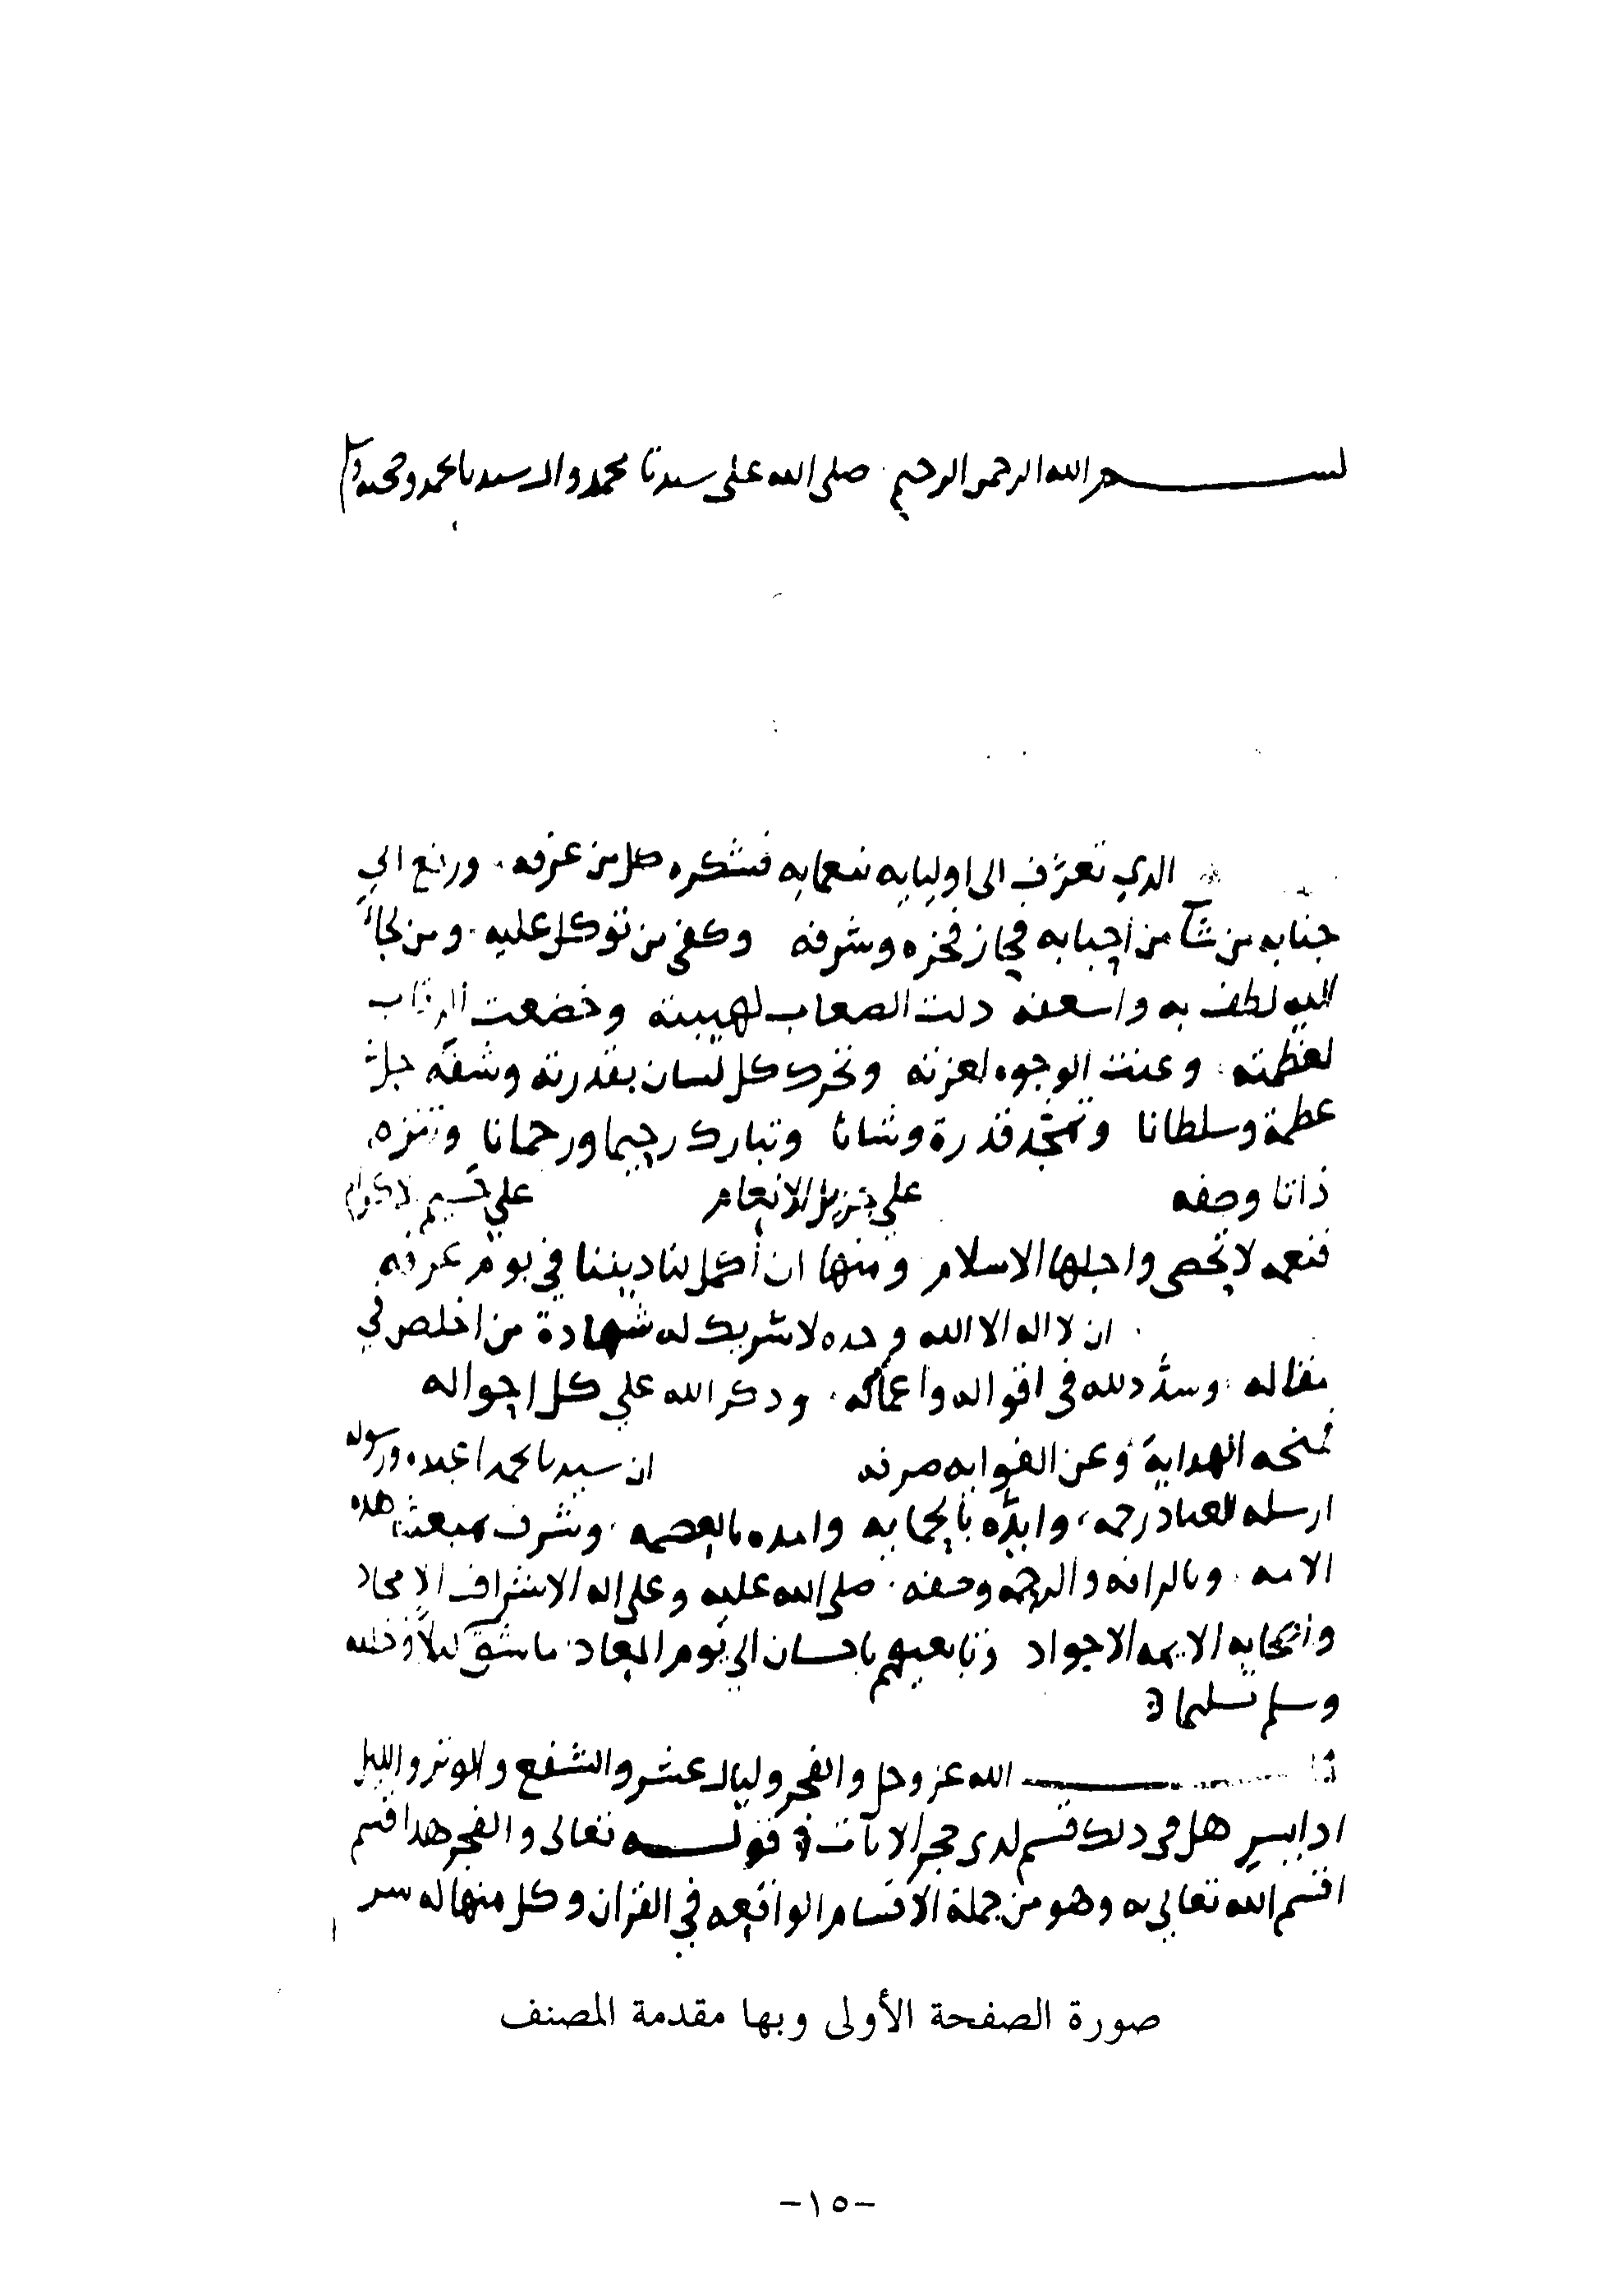 بســـــم الله الرحمن الرحيم صلى الله على سيدنا محمد وال سيدنا محمد وصحبه
الذي تعرّف الى اوليايه بنعمايه فشكره كل من عرفه ورفع الي
جنابه من شآ من احبابه فحاز فخره وشرفه وكفى من توكل عليه ومن لجأ
اليه لطف به واسعفه ذلت الصعاب لهيبته وخضعت الرقاب
لعظمته وعنت الوجوه لعزته وتحرك كل لسان بقدرته وشفه جل
عظمة وسلطانا وتمجد قدرة وشانا وتبارك رحيما ورحمانا وتنزه
ذاتا وصفه علي جزيل الانعام علي جسيم الاكرام
فنعمه لا تحصى واجلها الاسلام ومنها ان أكمل لنا ديننا في يوم عرفه
ان لا اله الا الله وحده لا شريك له شهادة من اخلص في
مقاله وسدّد لله فى اقواله واعماله وذكر الله علي كل احواله
فمنحه الهداية وعن الغوايه صرفه ان سيدنا محمدا عبده ورسوله
ارسله للعباد رحمه وايدّه بالصحابه وامده بالعصمه وشرف بمبعثه هذه
الامه وبالرافه والرحمه وصفه صلى الله عليه وعلى اله الاشراف الامجاد
واصحابه الايمه الاجواد وتابعيهم باحسان الي يوم المعاد
وسلم تسليما
الله عز وجل والفجر وليال عشر والشفع والوتر والليل
اذا يسر هل فى ذلك قسم لذى حجر الايآت قولـــــه تعالى والفجر هذا قسم
اقسم الله تعالي به وهو من جملة الاقسام الواقعه في القران وكل منها له سر
صورة الصفحة الأولى وبها مقدمة المصنف
-١٥-